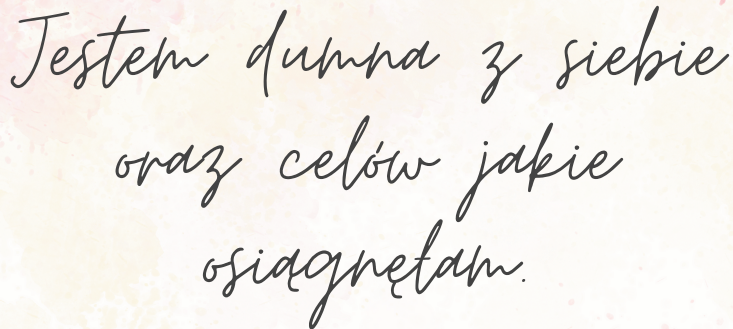 Jestem dumna z siebie
oraz celów jakie
osiągnęłam.